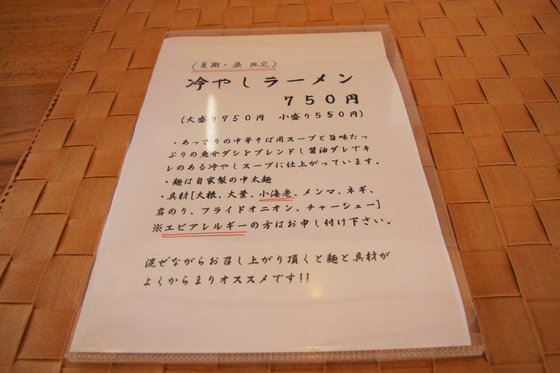 (夏期・昼 限定)
冷やしラーメン
750円
(大盛り950円 小盛り550円)
・あっさりの中華そば用スープと旨味たっ
ぷりの魚介ダシをブレンドし醤油ダレでキ
レのある冷やしスープに仕上がっています。
・麺は自家製の中太麺
・具材[大根、大葉、小海老、メンマ、ネギ、
岩のり、フライドオニオン、チャーシュー]
※エビアレルギーの方はお申し付け下さい。
混ぜながらお召し上がり頂くと麺と具材が
よくからまりオススメです!!